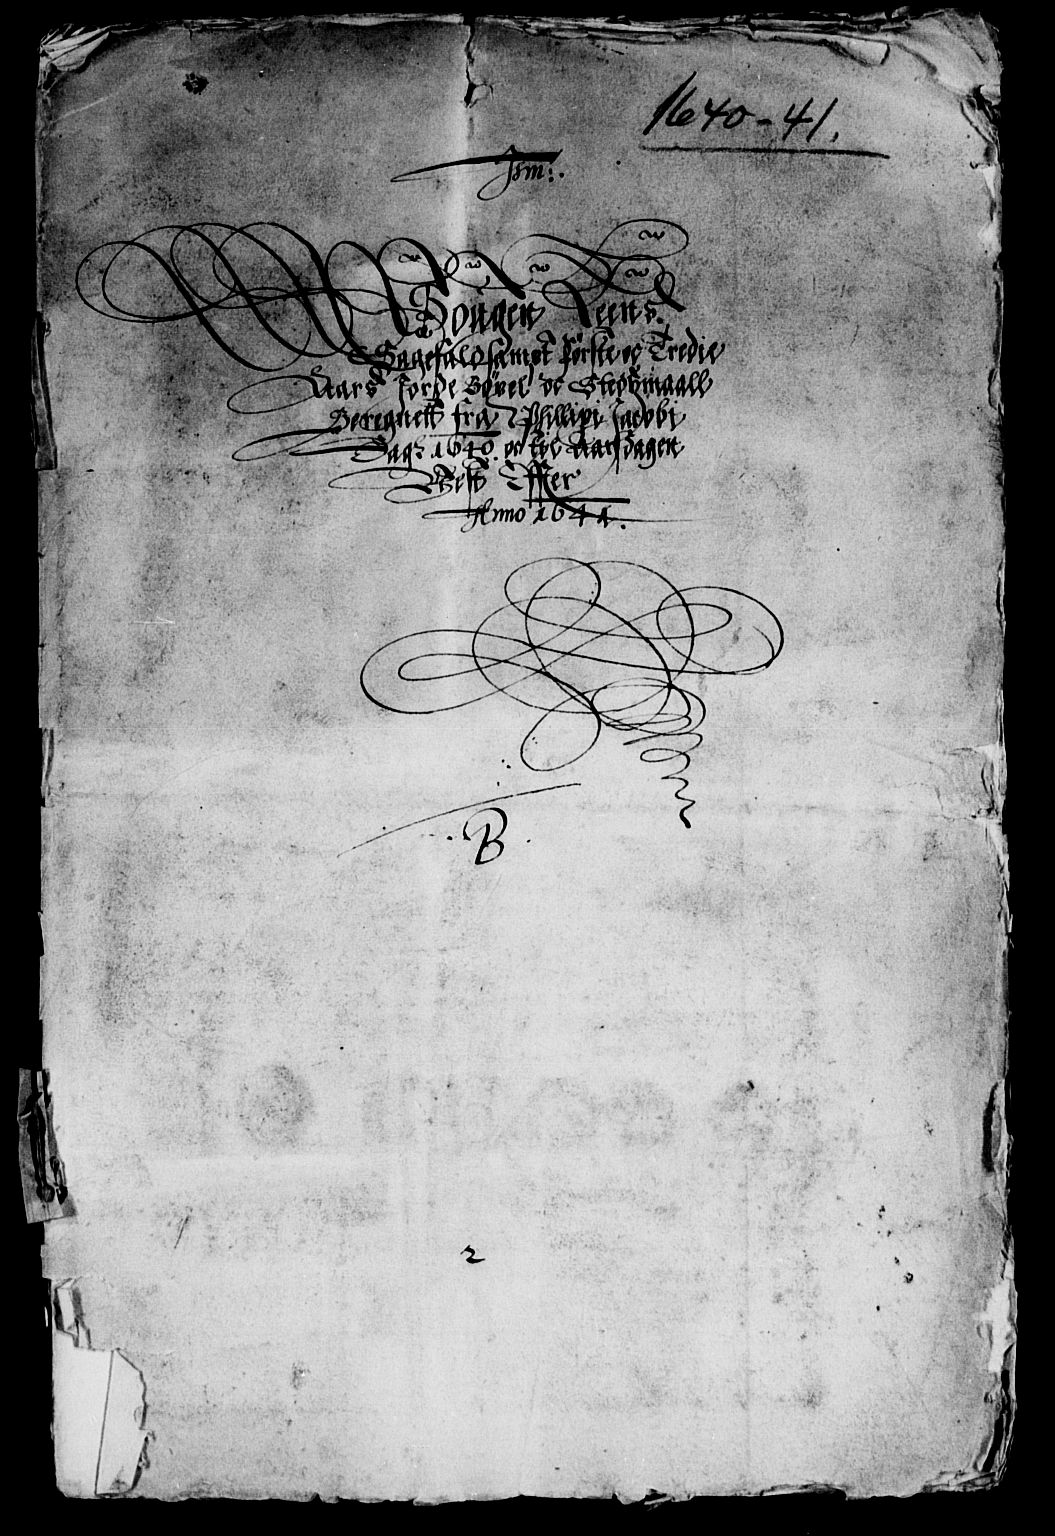 1640-41.
Jsm:.
Bougen Leens.
Sagefald sampt förste oc Tredie
Aars Jorde Böxel oc Stedzmaall
Beregnett fra Phillipi Jacobi
Dag 1640. oc till Aarsdagen
Nest Effter
Anno 1641.
B
2